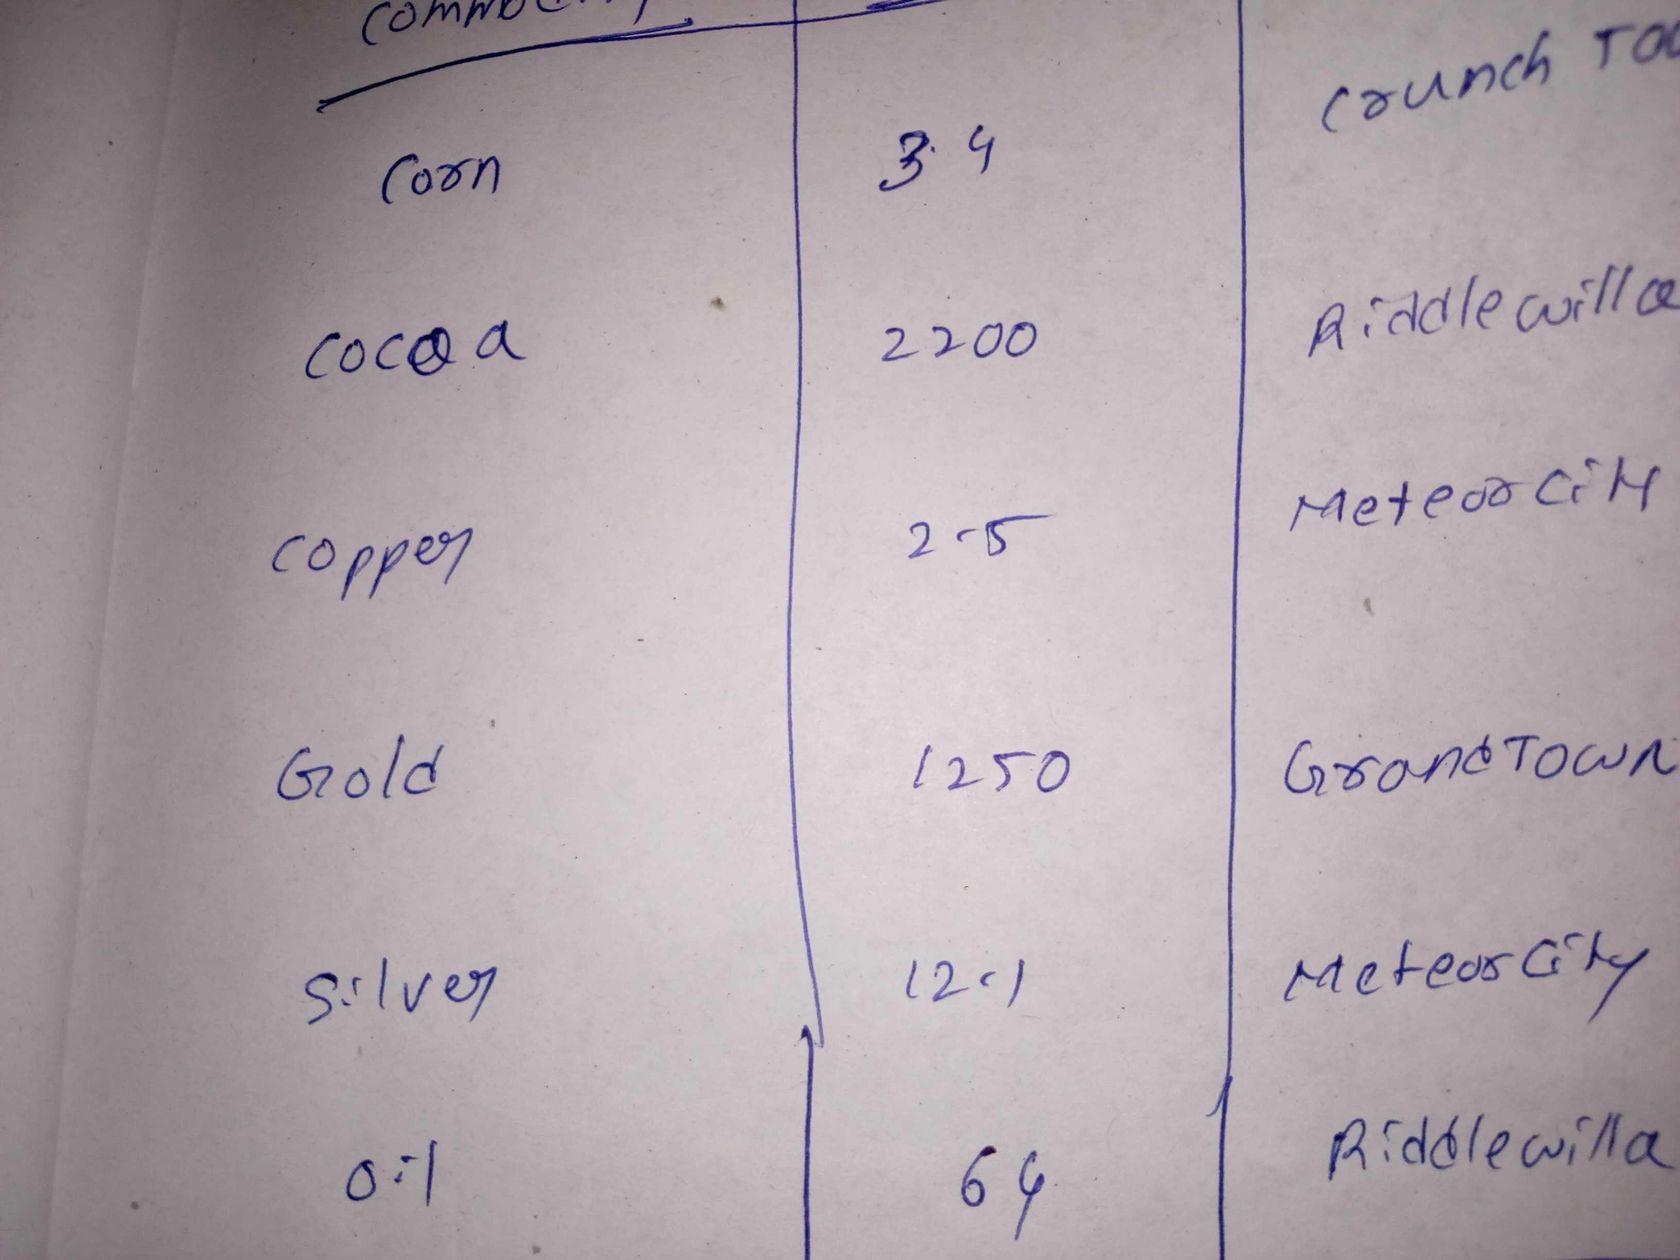 Corn 3.4
Cocoa 2200 Riddlewilla
Copper 2.5 Meteor City
Gold 1250 Grand Town
Silver 12.1 Meteor City
Oil 64 Riddlewilla